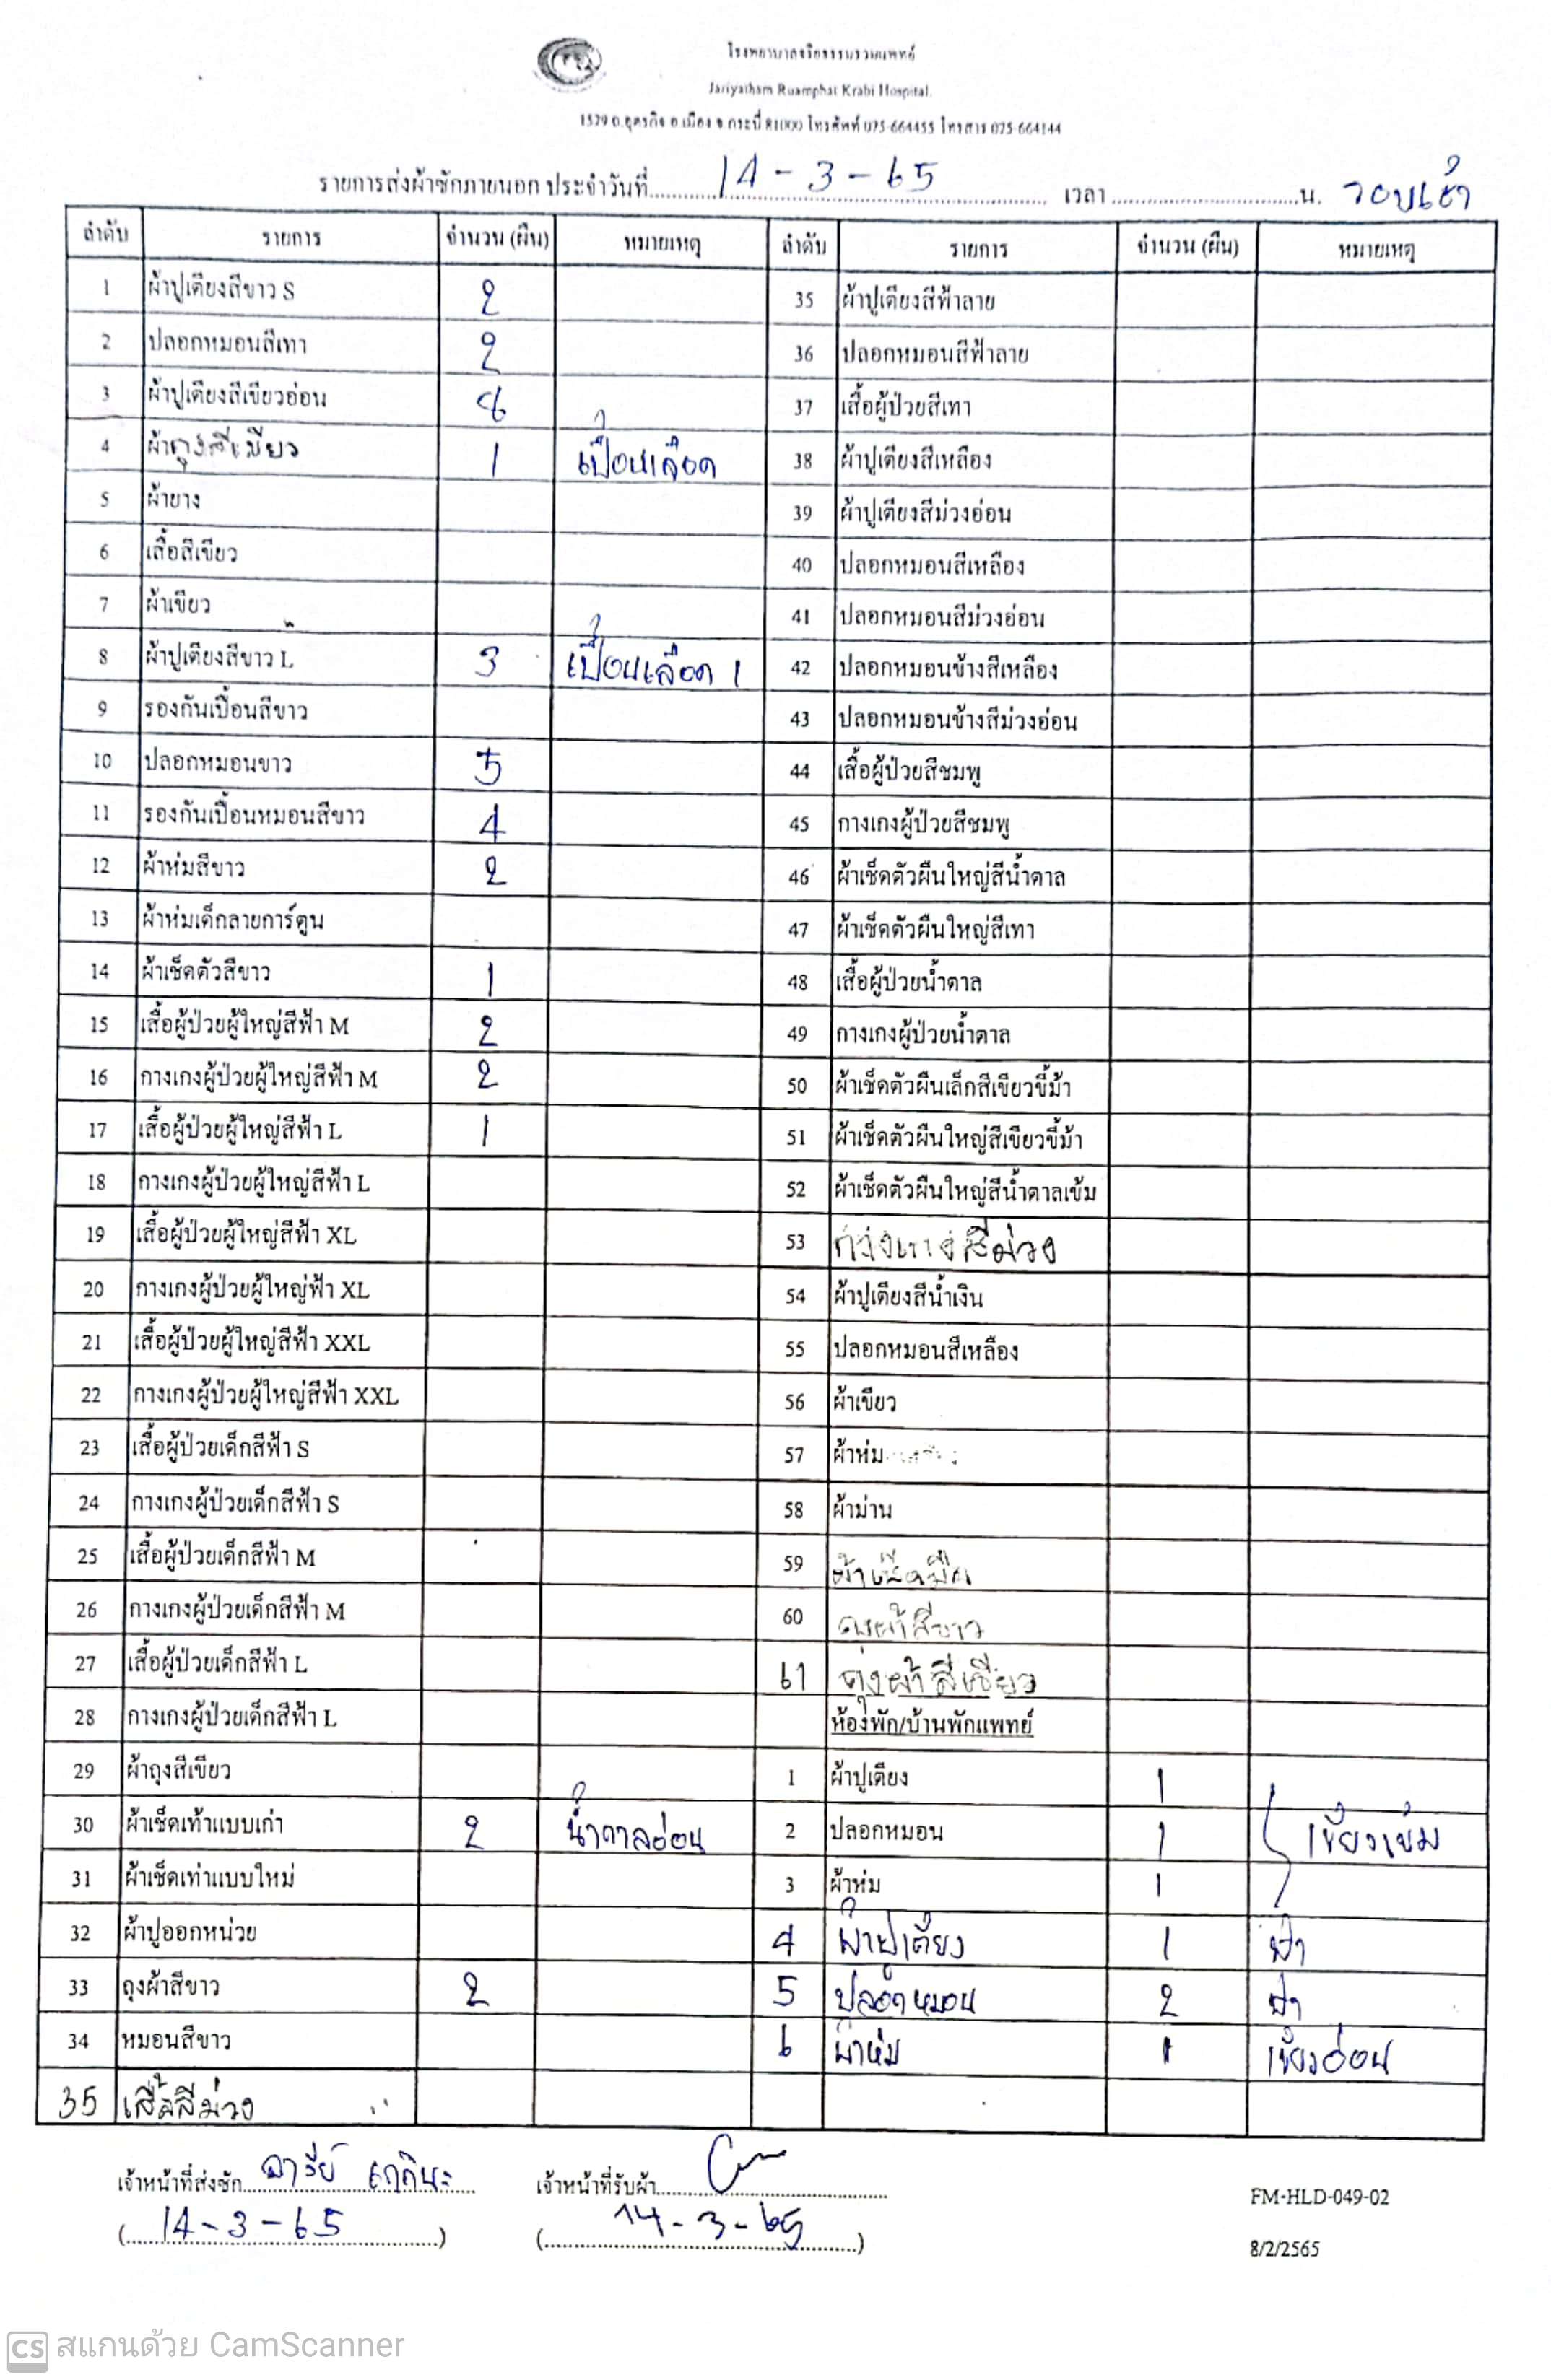 โรงพยาบาลจริยธรรมรวมแพทย์
Jariyatham Ruamphat Krabi Hospital.
1529 ถ.อุตรกิจ อ.เมือง จ.กระบี่ 81000 โทรศัพท์ 075-664455 โทรสาร 075-664144
รายการส่งผ้าซักภายนอก ประจำวันที่ 14-3-65 เวลา น. รอบเช้า
ลำดับ รายการ จำนวน (ผืน) หมายเหตุ ลำดับ รายการ จำนวน (ผืน) หมายเหตุ
1 ผ้าปูเตียงสีขาว S 2 35 ผ้าปูเตียงสีฟ้าลาย
2 ปลอกหมอนสีเทา 2 36 ปลอกหมอนสีฟ้าลาย
3 ผ้าปูเตียงสีเขียวอ่อน 8 37 เสื้อผู้ป่วยสีเทา
4 ผ้าถุงสีเขียว 1 เปื้อนเลือด 38 ผ้าปูเตียงสีเหลือง
5 ผ้ายาง 39 ผ้าปูเตียงสีม่วงอ่อน
6 เสื้อสีเขียว 40 ปลอกหมอนสีเหลือง
7 ผ้าเขียว 41 ปลอกหมอนสีม่วงอ่อน
8 ผ้าปูเตียงสีขาว L 3 เปื้อนเลือด 1 42 ปลอกหมอนข้างสีเหลือง
9 รองกันเปื้อนสีขาว 43 ปลอกหมอนข้างสีม่วงอ่อน
10 ปลอกหมอนขาว 5 44 เสื้อผู้ป่วยสีชมพู
11 รองกันเปื้อนหมอนสีขาว 4 45 กางเกงผู้ป่วยสีชมพู
12 ผ้าห่มสีขาว 2 46 ผ้าเช็ดตัวผืนใหญ่สีน้ำตาล
13 ผ้าห่มเด็กลายการ์ตูน 47 ผ้าเช็ดตัวผืนใหญ่สีเทา
14 ผ้าเช็ดตัวสีขาว 1 48 เสื้อผู้ป่วยน้ำตาล
15 เสื้อผู้ป่วยผู้ใหญ่สีฟ้า M 2 49 กางเกงผู้ป่วยน้ำตาล
16 กางเกงผู้ป่วยผู้ใหญ่สีฟ้า M 2 50 ผ้าเช็ดตัวผืนเล็กสีเขียวขี้ม้า
17 เสื้อผู้ป่วยผู้ใหญ่สีฟ้า L 1 51 ผ้าเช็ดตัวผืนใหญ่สีเขียวขี้ม้า
18 กางเกงผู้ป่วยผู้ใหญ่สีฟ้า L 52 ผ้าเช็ดตัวผืนใหญ่สีน้ำตาลเข้ม
19 เสื้อผู้ป่วยผู้ใหญ่สีฟ้า XL 53 กางเกงสีม่วง
20 กางเกงผู้ป่วยผู้ใหญ่ฟ้า XL 54 ผ้าปูเตียงสีน้ำเงิน
21 เสื้อผู้ป่วยผู้ใหญ่สีฟ้า XXL 55 ปลอกหมอนสีเหลือง
22 กางเกงผู้ป่วยผู้ใหญ่สีฟ้า XXL 56 ผ้าเขียว
23 เสื้อผู้ป่วยเด็กสีฟ้า S 57 ผ้าห่ม
24 กางเกงผู้ป่วยเด็กสีฟ้า S 58 ผ้าม่าน
25 เสื้อผู้ป่วยเด็กสีฟ้า M 59 ผ้าเช็ดมือ
26 กางเกงผู้ป่วยเด็กสีฟ้า M 60 ถุงผ้าสีขาว
27 เสื้อผู้ป่วยเด็กสีฟ้า L 61 ถุงผ้าสีเขียว
28 กางเกงผู้ป่วยเด็กสีฟ้า L ห้องพัก/บ้านพักแพทย์
29 ผ้าถุงสีเขียว 1 ผ้าปูเตียง 1
30 ผ้าเช็ดเท้าแบบเก่า 2 น้ำตาลอ่อน 2 ปลอกหมอน 1 เขียวเข้ม
31 ผ้าเช็ดเท้าแบบใหม่ 3 ผ้าห่ม 1
32 ผ้าปูออกหน่วย 4 ผ้าปูเตียง 1 ฟ้า
33 ถุงผ้าสีขาว 2 5 ปลอกหมอน 2 ฟ้า
34 หมอนสีขาว 6 ผ้าห่ม 1 เขียวอ่อน
35 เสื้อสีม่วง
เจ้าหน้าที่ส่งซัก เจ้าหน้าที่รับผ้า
(14-3-65) (14-3-65)
FM-HLD-049-02
8/2/2565
CS สแกนด้วย CamScanner